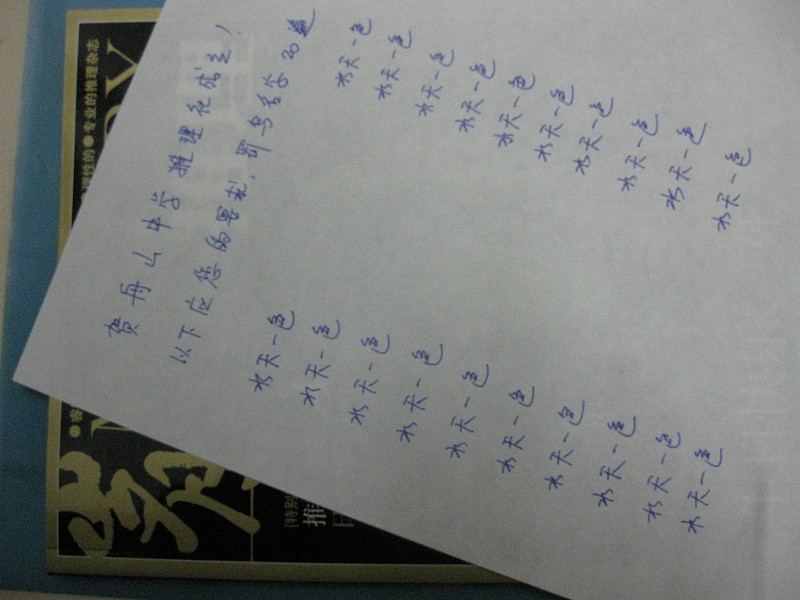 理性的●专业的推理杂志
贺舟山中学推理社成立!
以下应您的要求,罚写名字20遍
水天一色 水天一色
水天一色 水天一色
水天一色 水天一色
水天一色 水天一色
水天一色 水天一色
水天一色 水天一色
水天一色 水天一色
水天一色 水天一色
水天一色 水天一色
水天一色 水天一色
[特别
推